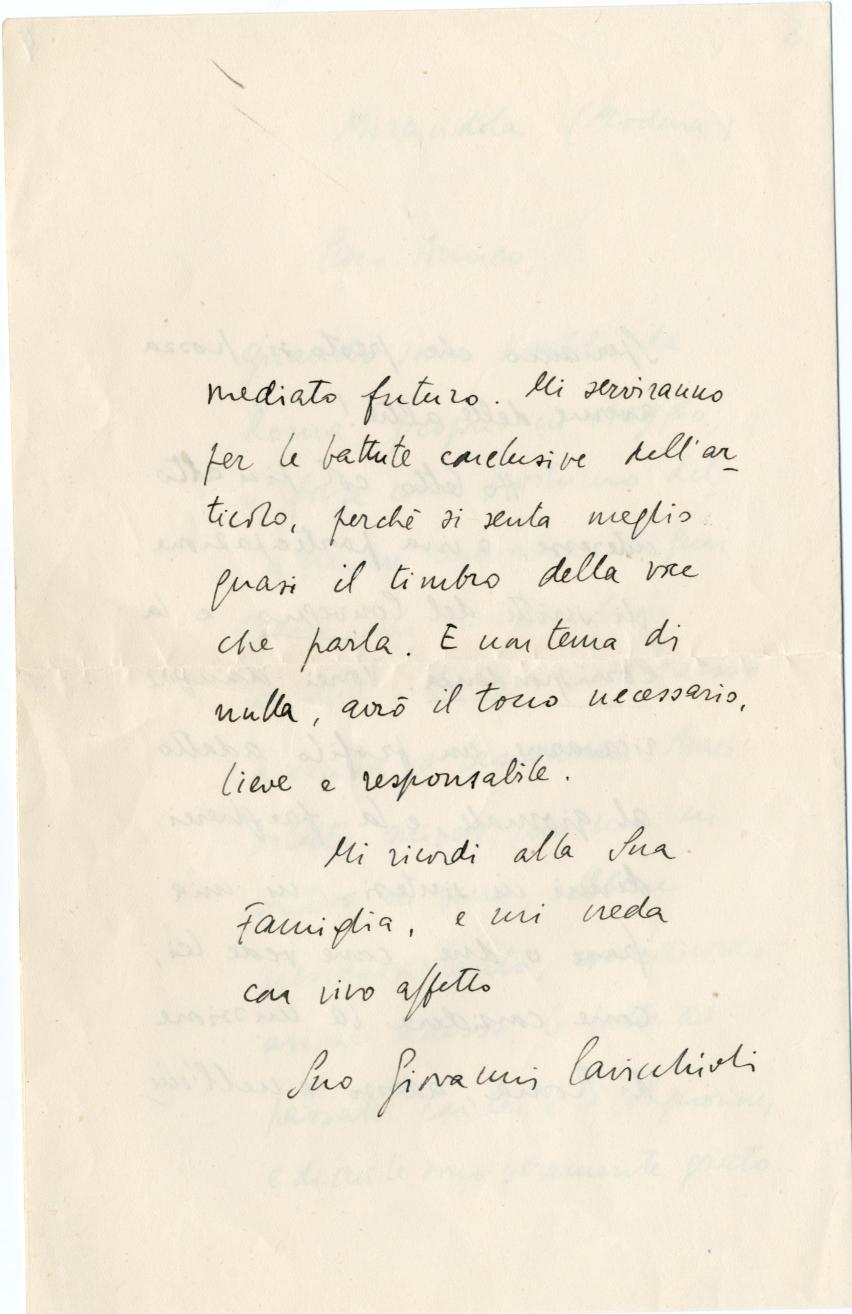 mediato futuro. Mi serviranno
per le battute conclusive dell'ar-
ticolo, perchè si senta meglio
quasi il timbro della voce
che parla. E non tema di
nulla, avrò il tocco necessario,
lieve e responsabile.
Mi ricordi alla Sua
Famiglia, e mi creda
con vivo affetto
Suo Giovanni Cavicchioli